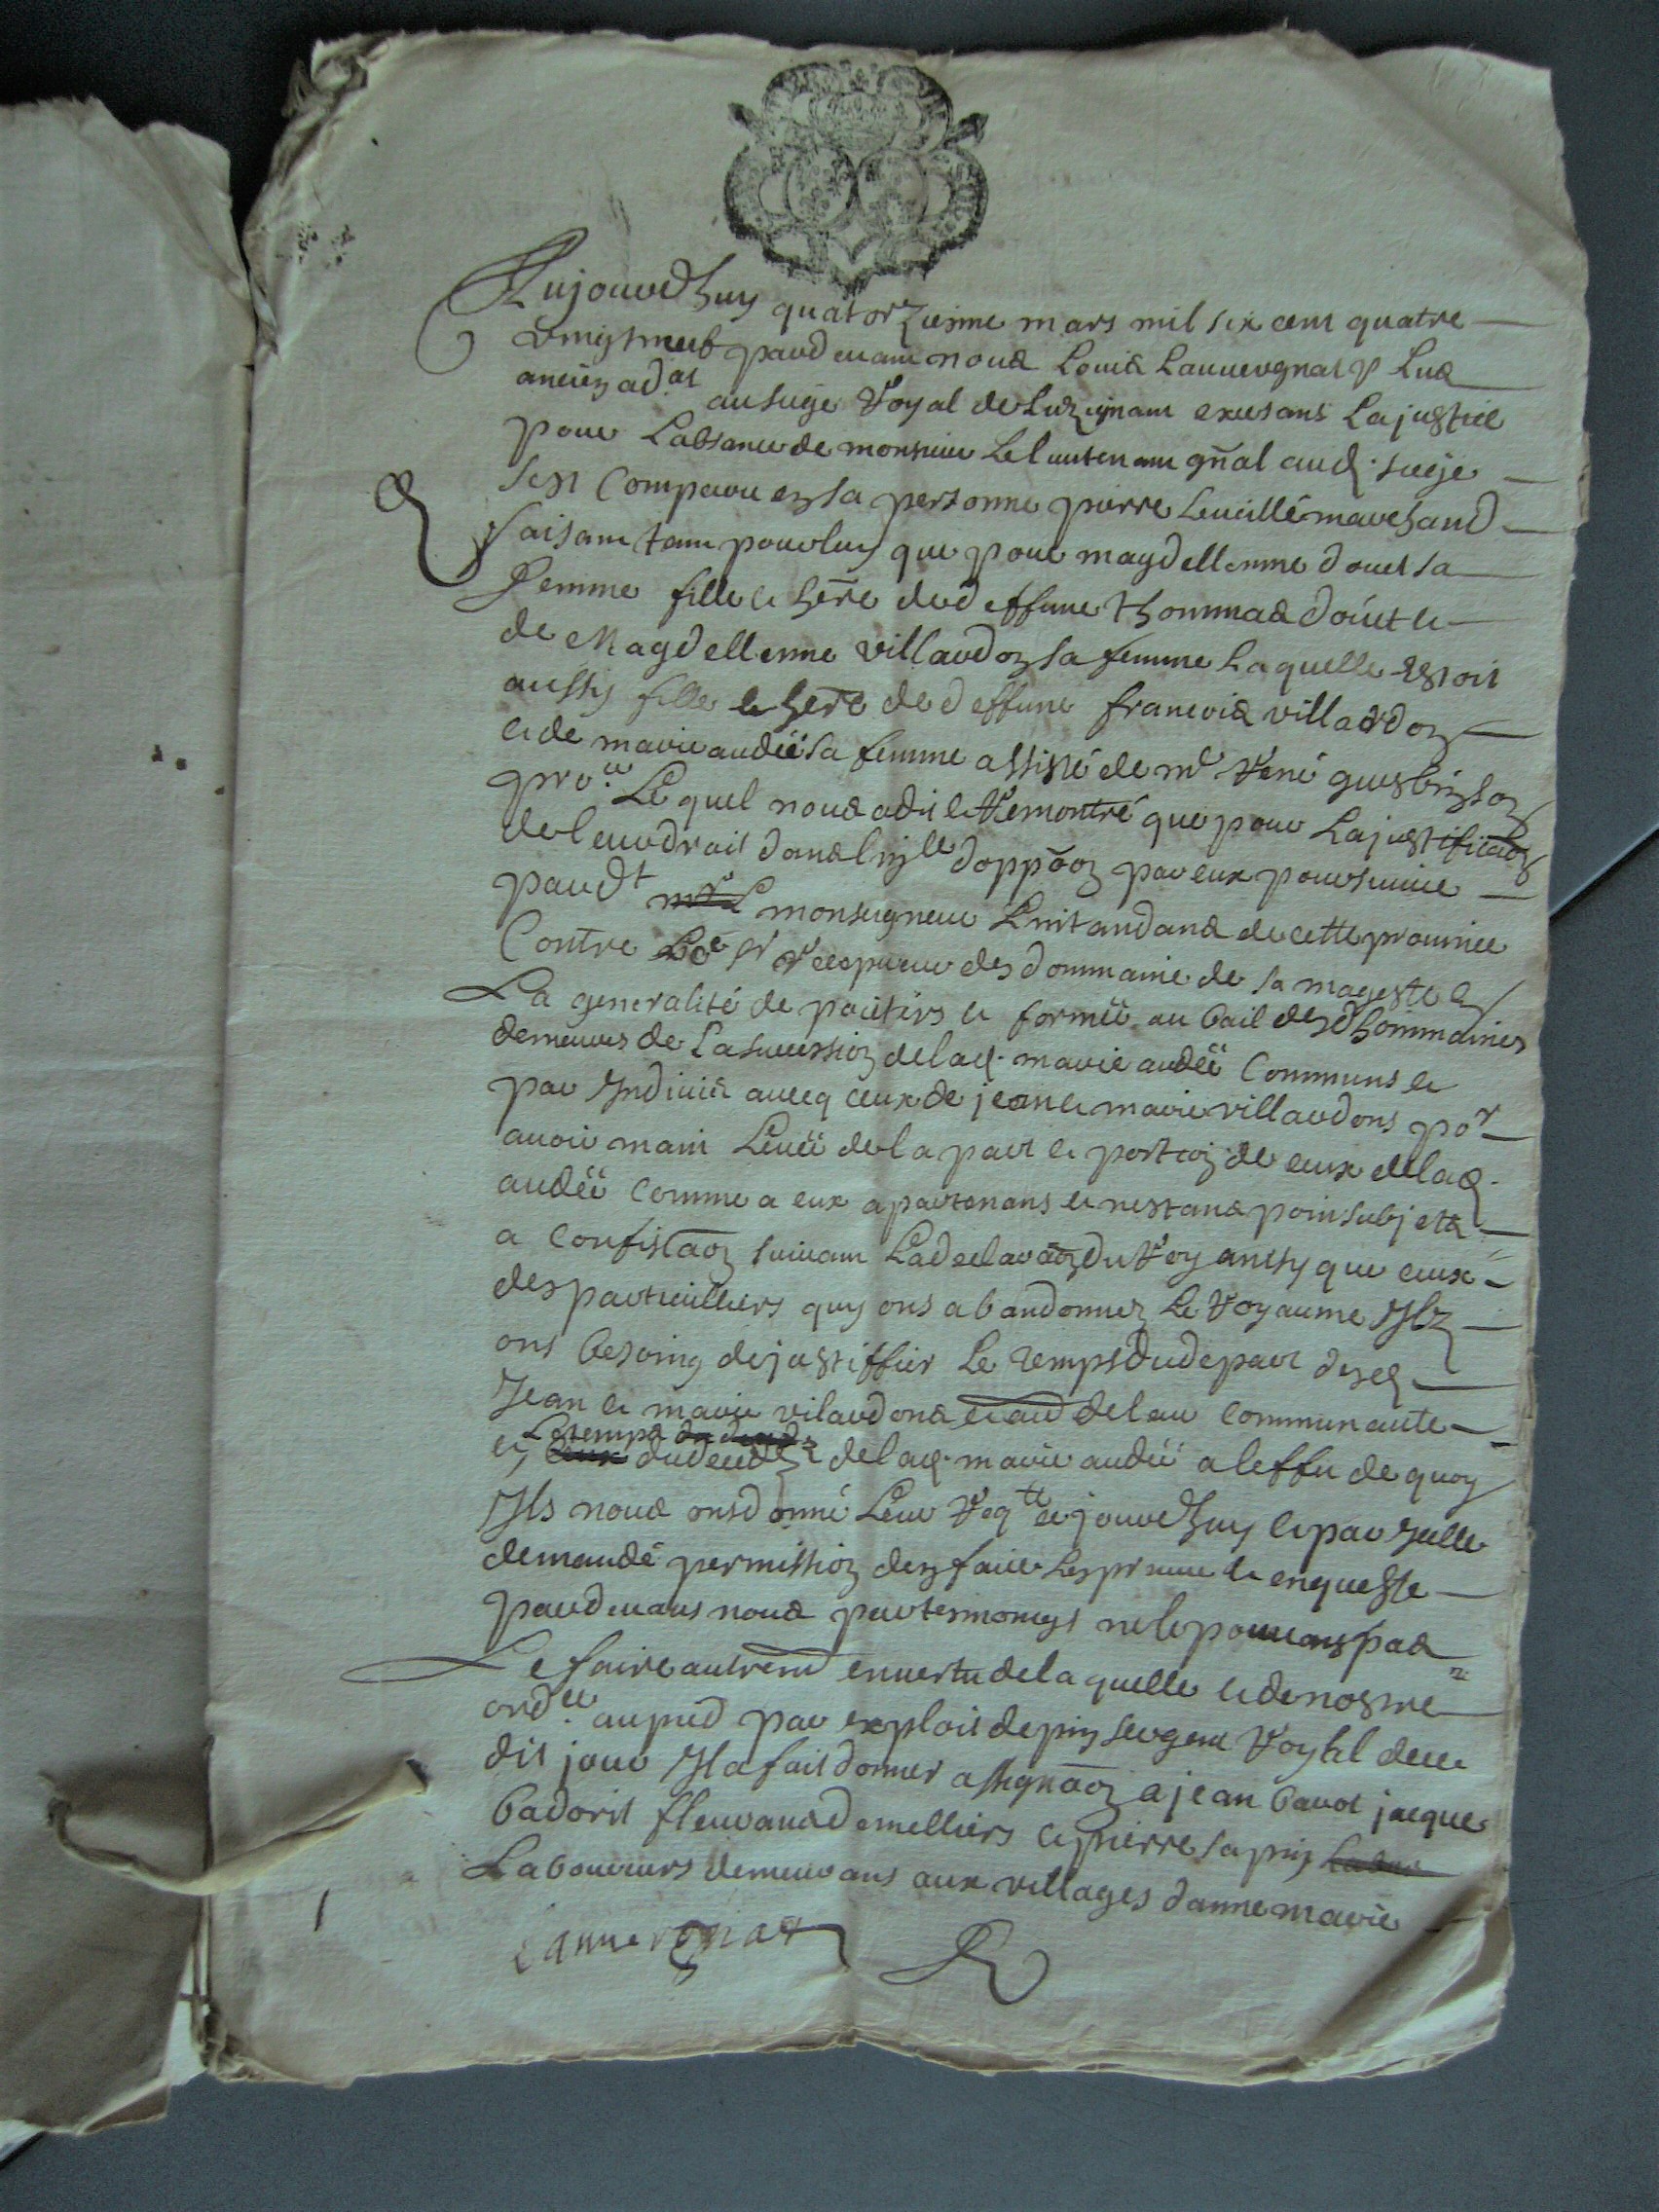 Aujourdhuy quatorziesme mars mil six cent quatre
vingt neuf pardevant nous Louis Lauvergnat
antien adat au siege Royal de Luzignant exersant la justice
pour Labsance de monsieur Le lieutenant gñal aud. siege
Sest Comparu en sa personne pierre Leveillé marchand
faisant tant pour luy que pour magdellenne douet sa
femme fille et here de deffunt Thommas douet et
de Magdellenne villardon sa femme Laquelle Estoit
aussy fille et here de deffunt francois villardon
et de marie audée sa femme assisté de me René
pro.ur Lequel nous a dit et Remontré que pour La justificaon
de leur droit dans lin.ce doppõon par eux poursuivie
pardt monseigneur Lintandans de cette province
Contre Le Sr Recepveur des dommaine de sa mageste en
La generalité de poictiers et fermier au bail des dhommaines
demeures de La sucession de lad. marie audée Communs et
par Indivis avecq ceux de jean et marie villardons por
avoir main Levée de la part et portion de ceux de lad.
audée comme a eux apartenans et nestans poin subjets
a Confiscaon suivant La declaraon du Roy ainsy que ceux
des particulliers quy ont abandonnez Le Royaume Ilz
ont besoing de justiffier Le temps du depart desd.
Jean et marie vilardons et de leur communaute
Le temps
et du deced de lad. marie audée a leffet de quoy
Ils nous ons donné Leur Reqte ce jourdhuy et par Icelle
demandé permission den faire Les preuve et enqueste
pardevans nous par tesmoings ne le pouvans pas
Le faire autrem en vertu de laquelle et de nostre
ord.ce au pied par exploit de pin sergent Royal de ce
dit jour Il a fait donner assignaon a jean bavot jacques
badorit fleurans demelliers et pierre sapin
Laboureurs demeurans aux villages danne marie
Lauvergnat